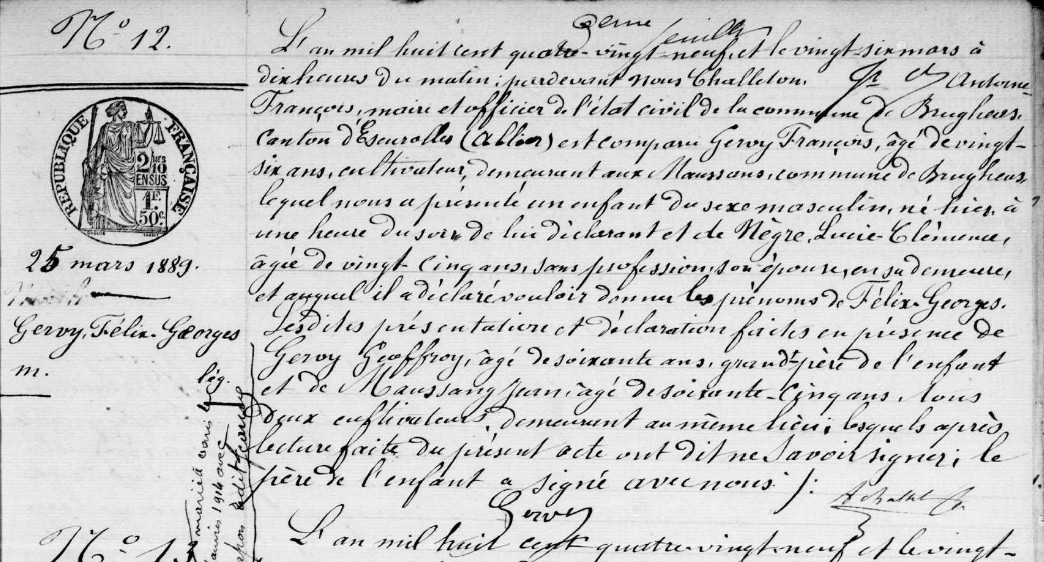 N° 12.
L'an mil huit cent quatre-vingt-neuf, et le vingt-six mars à
dix heures du matin; par devant nous Challeton Antoine-
François, maire et officier de l'état civil de la commune de Brugheas,
canton d'Escurolles (Allier) est comparu Gervy François, âgé de vingt-
six ans, cultivateur, demeurant aux Maussans, commune de Brugheas
lequel nous a présenté un enfant du sexe masculin, né hier, à
une heure du soir, de lui déclarant et de Nègre, Lucie-Clémence,
âgée de vingt-cinq ans, sans profession, son épouse, en sa demeure,
et auquel il a déclaré vouloir donner les prénoms de Félix-Georges.
Lesdites présentation et déclaration faites en présence de
Gervy Geoffroy, âgé de soixante ans, grand-père de l'enfant
et de Maussang Jean, âgé de soixante-cinq ans, tous
deux cultivateurs, demeurant au même lieu; lesquels après
lecture faite du présent acte ont dit ne savoir signer; le
père de l'enfant a signé avec nous ./.
Gervy
RÉPUBLIQUE FRANÇAISE
2/10
EN SUS
1F.
50c
25 mars 1889.
Gervy, Félix-Georges
m.
marié à
janvier 1914 avec
L'an mil huit cent quatre-vingt-neuf et le vingt-